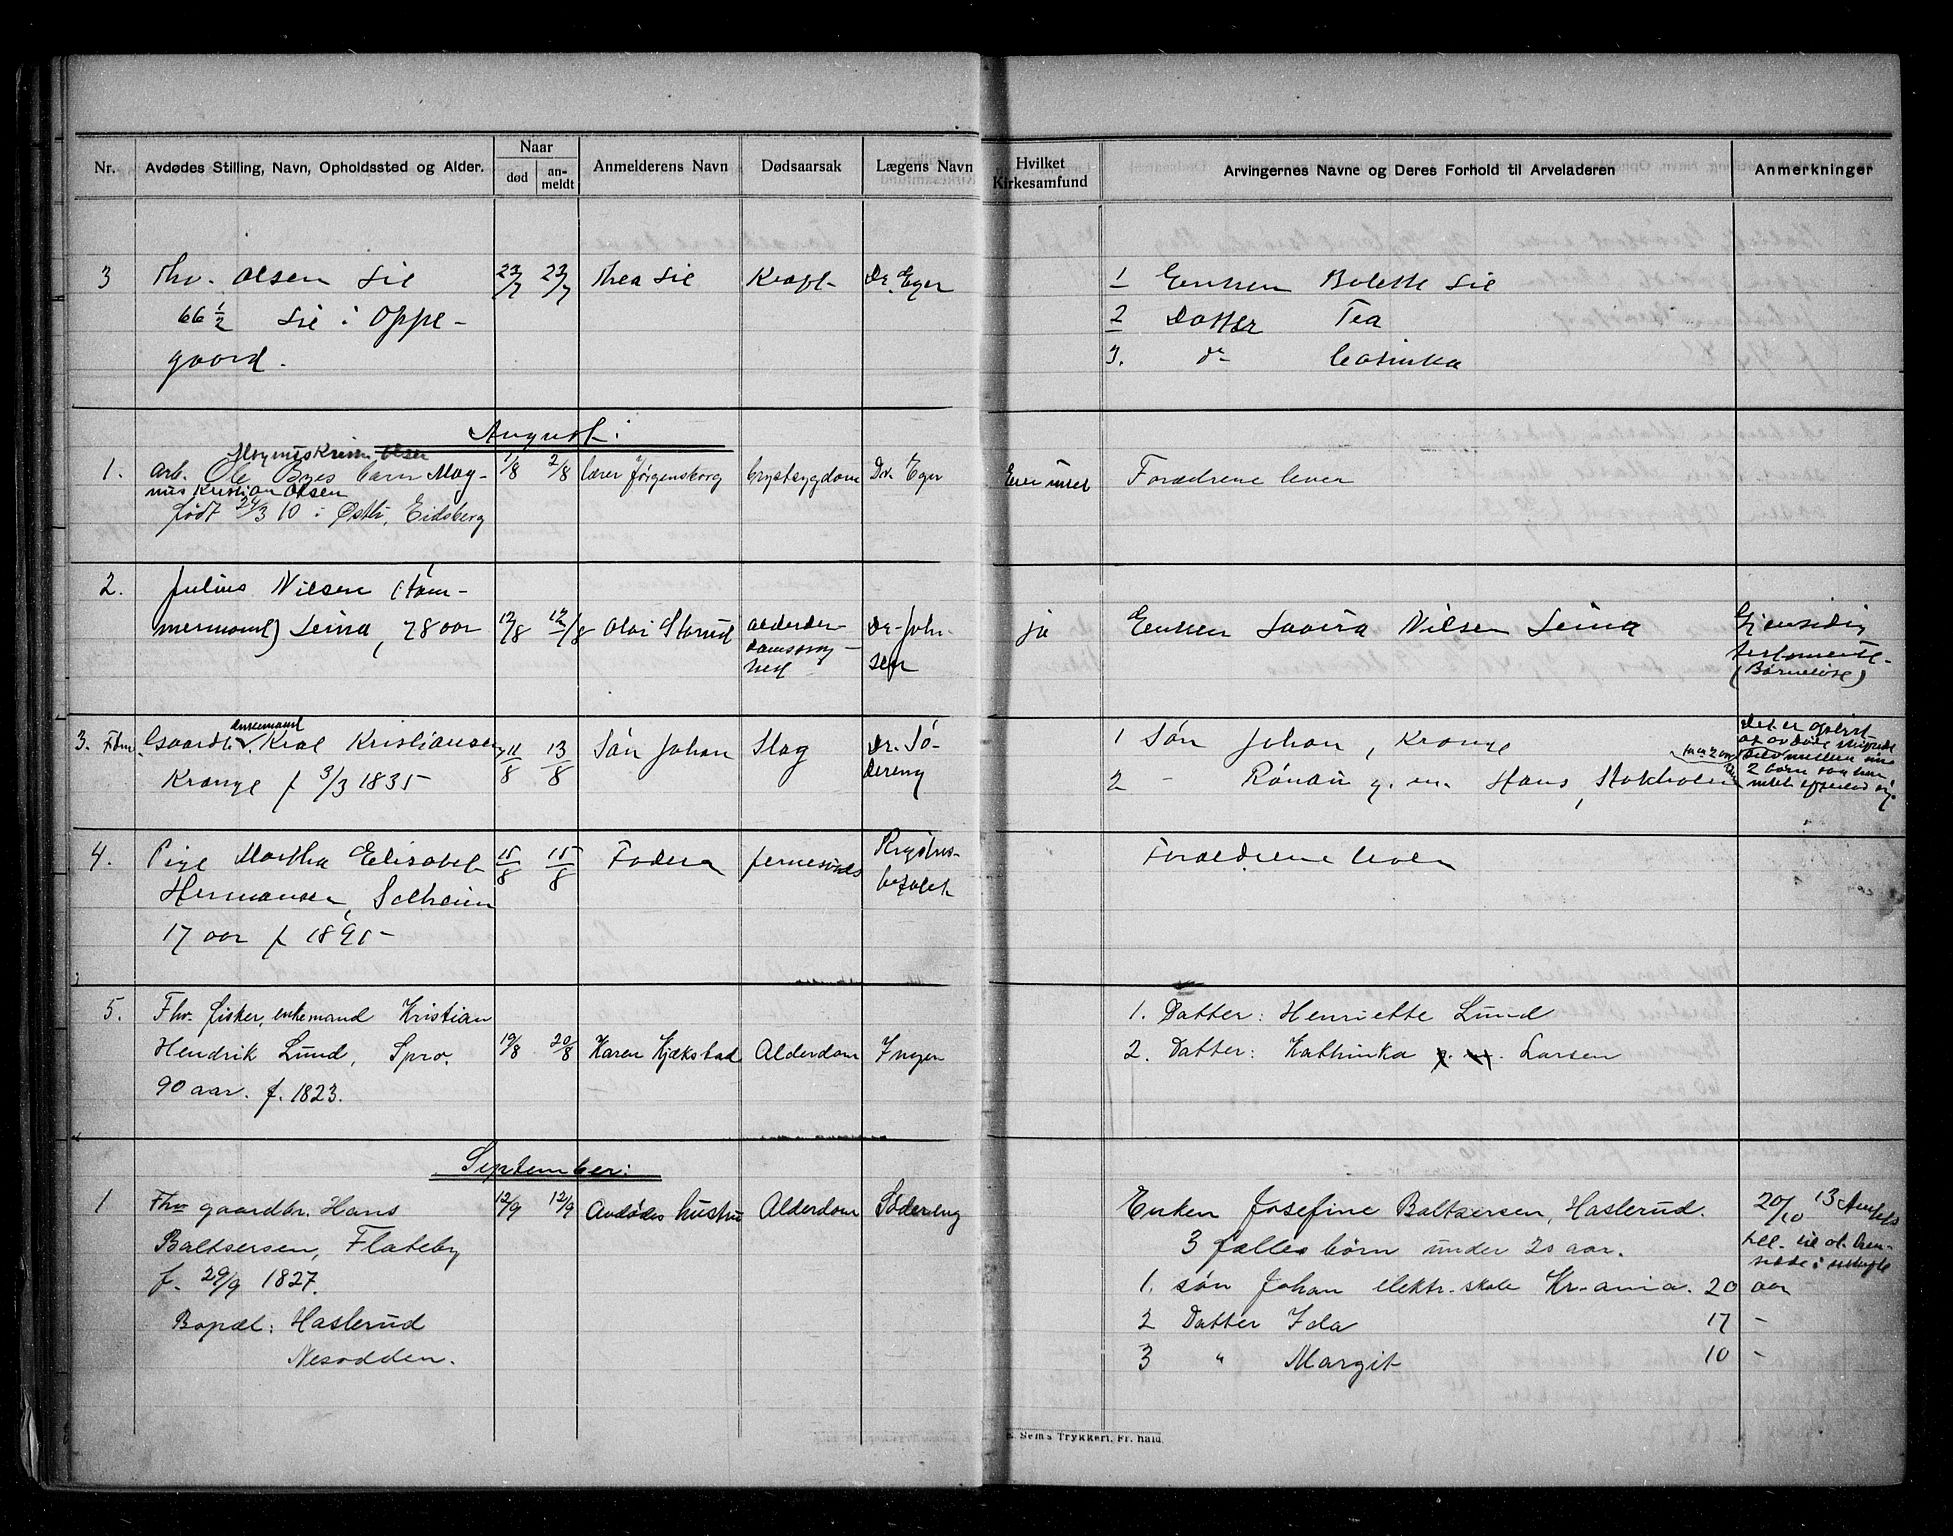 Nr.
Avdødes Stilling, Navn, Opholdssted og Alder.
Naar
død
an-
meldt
Anmelderens Navn
Dødsaarsak
Lægens Navn
Hvilket
Kirkesamfund
Arvingernes Navne og Deres Forhold til Arveladeren
Anmerkninger
3 Olsen Lie 23/7 23/7 Thea Lie Kræft Dr. Eger
66 1/2 Lie i Oppe-
gaard.
1 Enken Bolette Lie
2 Datter Tea
3. do
August:
1. arb. Ole Byes barn Mag- 1/8 2/8 Lærer Jørgensborg Brystsygdom Dr. Eger
nus Kristian Olsen
født 24/3 10 i Østli, Eidsberg
Forældrene lever
2. Julius Nilsen (tøm-
mermand) Leina, 78 aar 12/8 12/8 Olai Storud alderdoms- Dr. Joh-
sen
ja Enken Lovisa Nilsen Leina Gjensidig
testamente
(Børneløse)
3. Gaardbr. Karl Kristiansen 11/8 13/8 Søn Johan Slag Dr. Sø-
Krange f 3/3 1835 dereng
enkemand
1 Søn Johan, Krange
2 - g. m. Hans, Stokholm
Det er oplyst
2 børn som
4. Pige Martha Elisabet 15/8 15/8 Fadera
Hermansen, Solheim
17 aar f 1895
Forældrene lever
5. Fhv. fisker, enkemand Kristian
Hendrik Lund, Spro. 19/8 20/8 Karen Kjækstad Alderdom Ingen
90 aar. f. 1823.
1. Datter: Henriette Lund
2. Datter: Kathinka g. m. Larsen
September:
1 Fhv gaardbr. Hans 12/9 12/9 Avdødes hustru Alderdom Södereng
Baltsersen, Flateby
f. 29/9 1827.
Bopæl: Haslerud
Nesodden.
Enken Josefine Baltsersen, Haslerud. 20/10 13
3 fælles børn under 20 aar.
1. søn Johan elektr. skole Kr.ania. 20 aar
2 Datter Ida 17 -
3 " Margit 10 -
Sems Trykkeri, Fr.hald